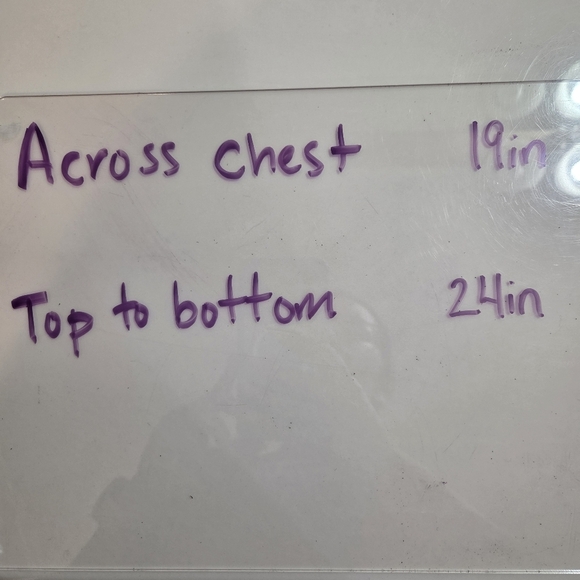 Across chest 19in
Top to bottom 24in